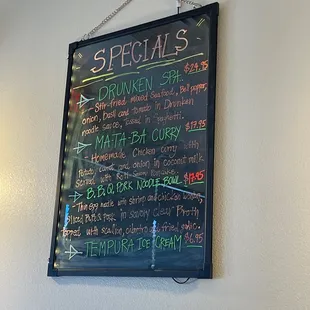 SPECIALS
DRUNKEN SPA $24.95
Stir-fried mixed Seafood, Bell pepper,
onion, Basil and tomato in Drunken
noodle sauce, Tossed in Spaghetti.
MATA-BA CURRY $17.95
Homemade Chicken curry with
Potato, and onion in coconut milk
Served with
B.B.Q. PORK NOODLE BOWL $17.95
Thin egg noodle with shrimp and chicken wonton,
Sliced B.B.Q Pork in savory clear Broth
topped with scallion, cilantro and fried garlic.
TEMPURA ICE CREAM $6.95